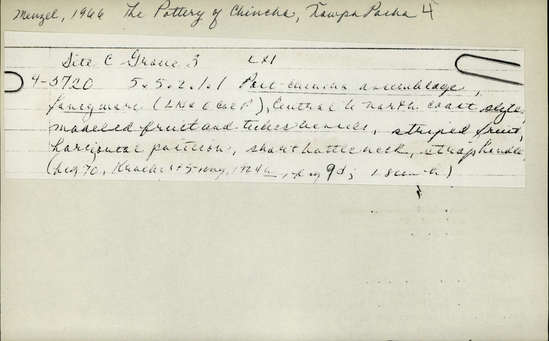 Menzel, 1966 The Pottery of Chincha, Ñawpa Pacha 4
Site C Grave 3
4-3720 5.5.2.1.1 Post-Chincha assemblage,
fancy ware (), Central to north coast style,
modeled fruit and tuber vessels, striped fruit,
horizontal position, short bottle neck, strap handle
(fig 70, Kroeber + Strong, 1924a, fig 9d; )